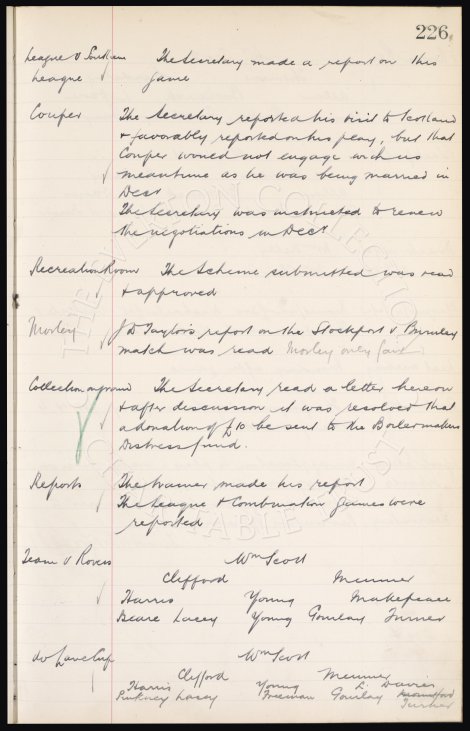 226.
League v Southern The Secretary made a report on this
League game
Couper The Secretary reported his visit to Scotland
& favorably reported on his play, but that
Couper would not engage with us
meantime as he was being married in
Decr
The Secretary was instructed to renew
the negotiations in Decr
Recreation Room The Scheme submitted was read
& approved
Morley J D Taylor's report on the Stockport v Burnley
match was read Morley only fair
Collection on ground The Secretary read a letter hereon
& after discussion it was resolved that
a donation of £10 be sent to the Boilermakers
Distress fund.
Reports The Trainer made his report
The League & Combination games were
reported
Team v Rovers Wm Scott
Clifford Menmer
Harris Young Makepeace
Beare Lacey Young Gourlay Turner
do Lancs Cup Wm Scott
Clifford Menmer
Harris Young L. Davies
Pinkney Lacey Freeman Gourlay Mountford
Turner
THE EVERTON COLLECTION
CHARITABLE TRUST